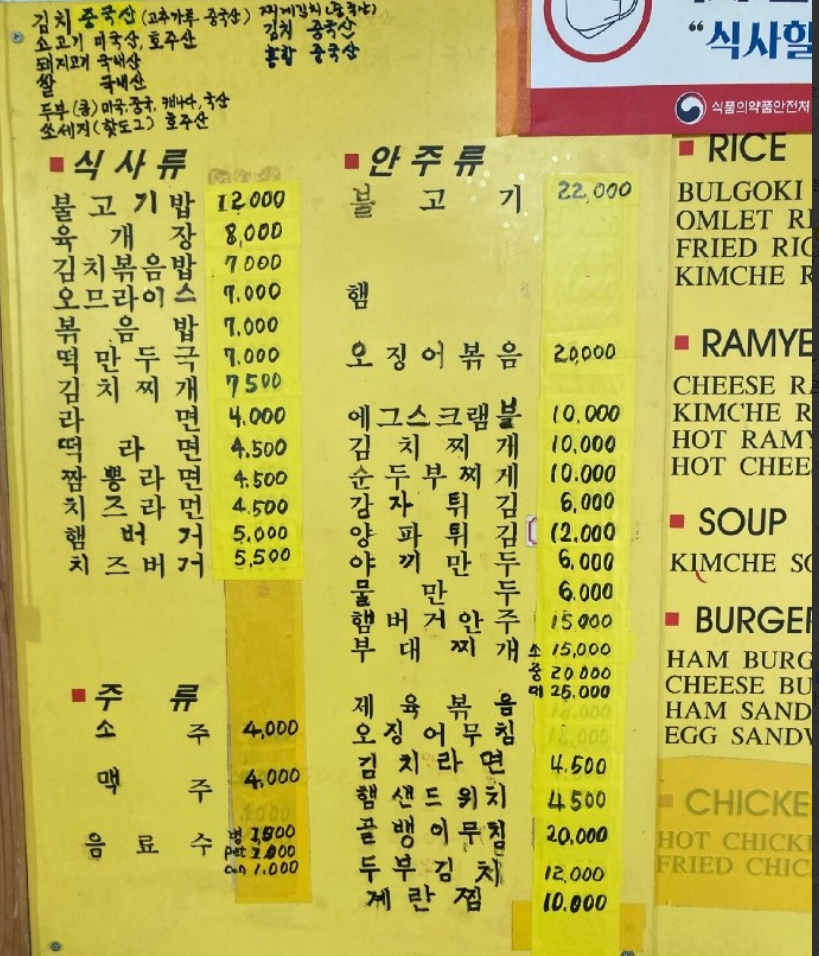 김치 중국산 (고추가루-중국산)
소고기 미국산, 호주산
돼지고기 국내산
쌀 국내산
두부(콩) 미국, 중국, 캐나다, 국산
쏘세지(핫도그) 호주산
김치 중국산
홍합 중국산
"식사할
식품의약품안전처
■ 식사류
불고기밥 12,000
육개장 8,000
김치볶음밥 7000
오므라이스 7,000
볶음밥 7,000
떡만두국 7,000
김치찌개 7500
라면 4,000
떡라면 4,500
짬뽕라면 4,500
치즈라면 4,500
햄버거 5,000
치즈버거 5,500
■ 주류
소주 4,000
맥주 4,000
음료수 병
pet
can 1,000
■ 안주류
불고기 22,000
햄
오징어볶음 20,000
에그스크램블 10,000
김치찌개 10,000
순두부찌게 10,000
감자튀김 6,000
양파튀김 12,000
야끼만두 6,000
물만두 6,000
햄버거안주 15,000
부대찌개 소 15,000
중 20,000
대 25,000
제육볶음
오징어무침
김치라면 4,500
햄샌드위치 4500
골뱅이무침 20,000
두부김치 12,000
계란찜 10,000
■ RICE
BULGOKI
OMLET RI
FRIED RIC
KIMCHE R
■ RAMYE
CHEESE RA
KIMCHE R
HOT RAMY
HOT CHEE
■ SOUP
KIMCHE SO
■ BURGER
HAM BURG
CHEESE BU
HAM SAND
EGG SANDW
■ CHICKE
HOT CHICK
FRIED CHIC